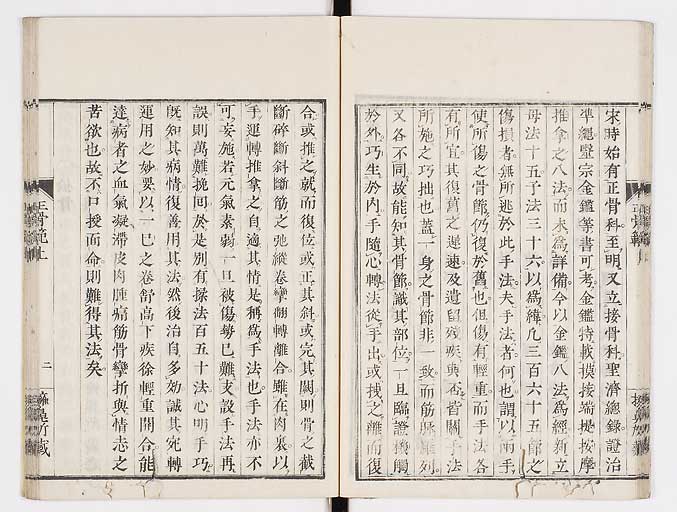 宋時始有正骨科至明又立接骨科聖濟總錄證治
準繩醫宗金鑑等書可考金鑑特載摸接端提按摩
推拿之八法而未為詳備今以金鑑八法為經新立
母法十五子法三十六以為緯凡三百六十五節之
傷損者無所逃於此手法夫手法者何也謂以兩手
使所傷之骨節仍復於舊也但傷有輕重而手法各
有所宜其復舊之遲速及遺留殘疾與否皆關手法
所施之巧拙也蓋一身之骨節非一致而筋脈羅列
又各不同故能知其骨節識其部位一旦臨證機觸
於外巧生於內手隨心轉法從手出或拽之離而復
合或推之就而復位或正其斜或完其闕則骨之截
斷碎斷斜斷筋之弛縱卷攣翻轉離合雖在肉裏以
手運轉推拿之自適其情是稱為手法也手法亦不
可妄施若元氣素弱一旦被傷勢已難支設手法再
誤則萬難挽回於是別有揉法百五十法心明手巧
既知其病情復善用其法然後治自多効誠其宛轉
運用之妙要以一己之卷舒高下疾徐輕重開合能
達病者之血氣凝滯皮肉腫痛筋骨攣折與情志之
苦欲也故不口授面命則難得其法矣
正骨範上
二